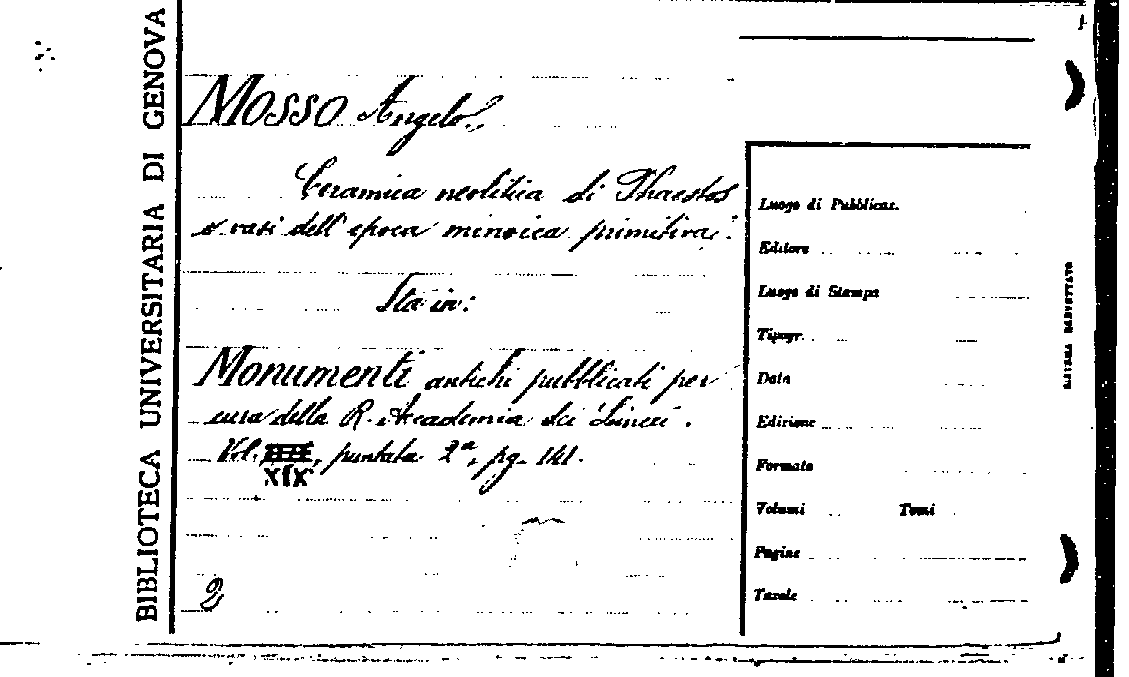 BIBLIOTECA UNIVERSITARIA DI GENOVA
MOSSO Angelo.
Ceramica neolitica di Phaestos
e vasi dell'epoca minoica primitiva.
Sta in:
Monumenti antichi pubblicati per
cura della R. Accademia dei Lincei.
Vol. XIX, puntata 2ª, pg. 141.
2
Luogo di Pubblicaz.
Editore
Luogo di Stampa
Tipogr.
Data
Edizione
Formato
Volumi Tomi
Pagine
Tavole